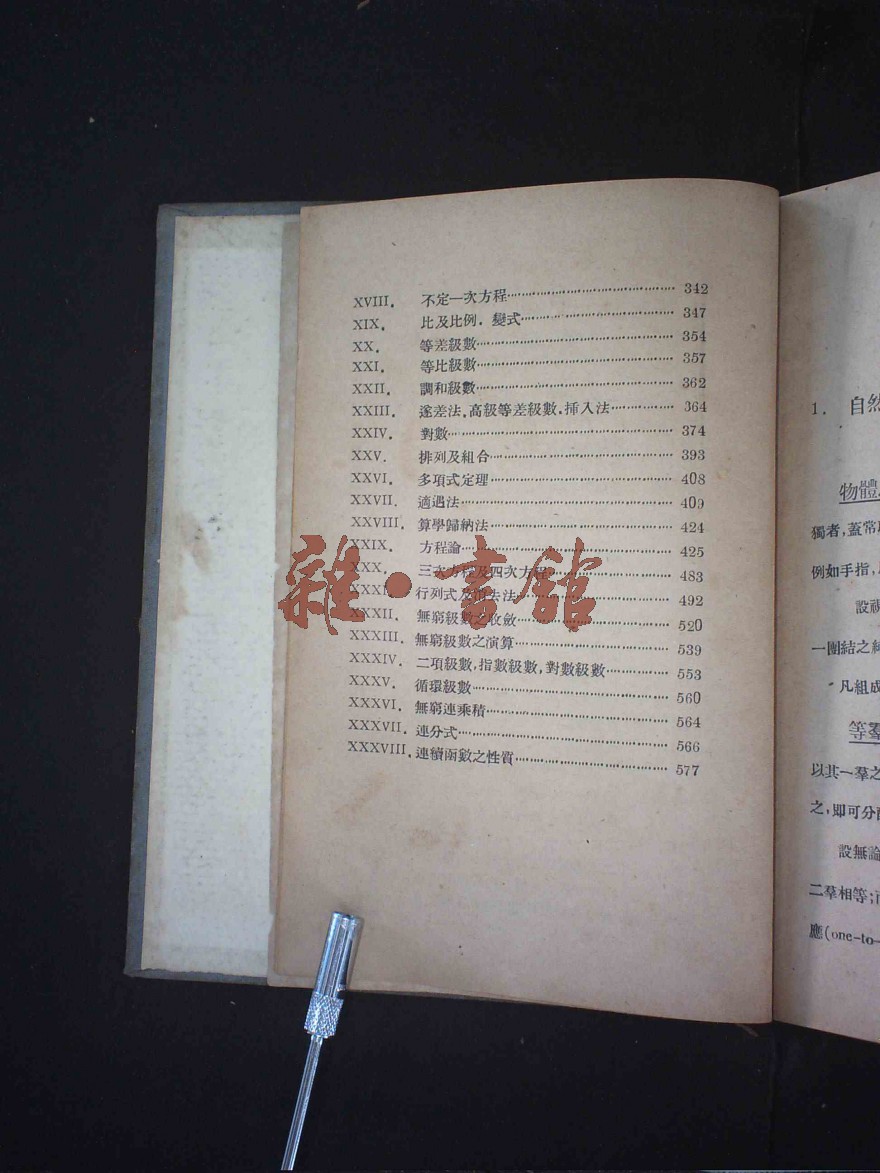 XVIII. 不定一次方程 342
XIX. 比及比例. 變式 347
XX. 等差級數 354
XXI. 等比級數 357
XXII. 調和級數 362
XXIII. 遂差法, 高級等差級數, 挿入法 364
XXIV. 對數 374
XXV. 排列及組合 393
XXVI. 多項式定理 408
XXVII. 適遇法 409
XXVIII. 算學歸納法 424
XXIX. 方程論 425
XXX. 三次方程及四次方程 483
XXXI. 行列式及消去法 492
XXXII. 無窮級數之收斂 520
XXXIII. 無窮級數之演算 539
XXXIV. 二項級數, 指數級數, 對數級數 553
XXXV. 循環級數 560
XXXVI. 無窮連乘積 564
XXXVII. 連分式 566
XXXVIII. 連續函數之性質 577
雜·書館
1. 自然
物體
獨者, 蓋常
例如手指,
設
一團結之
凡組成
等羣
以其一羣之
之, 即可分
設無論
二羣相等;
應(one-to-